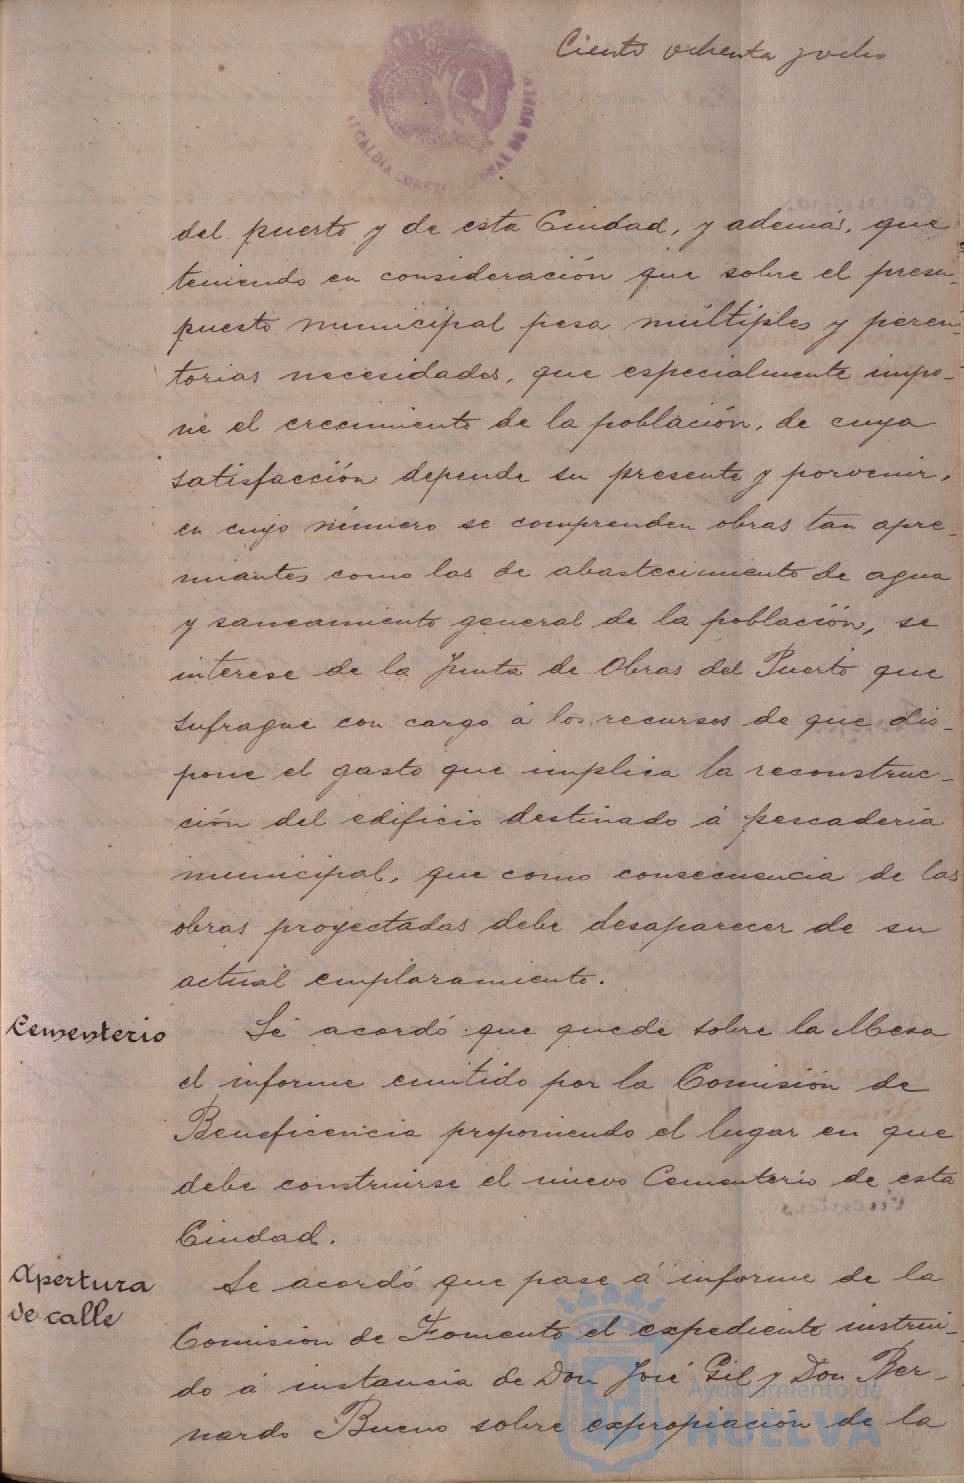 Ciento ochenta y ocho
ALCALDIA CONST NAL DE HUELVA
del puerto y de esta Ciudad, y además, que
teniendo en consideración que sobre el presu-
puesto municipal pesa múltiples y peren-
torias necesidades, que especialmente impo-
ne el crecimiento de la población, de cuya
satisfacción depende su presente y porvenir,
en cuyo número se comprenden obras tan apre-
miantes como las de abastecimiento de agua
y saneamiento general de la población, se
interese de la Junta de Obras del Puerto que
sufrague con cargo á los recursos de que dis-
pone el gasto que implica la reconstruc-
ción del edificio destinado á pescadería
municipal, que como consecuencia de las
obras proyectadas debe desaparecer de su
actual emplazamiento.
Cementerio
Se acordó que quede sobre la Mesa
el informe emitido por la Comisión de
Beneficencia proponiendo el lugar en que
debe construirse el nuevo Cementerio de esta
Ciudad.
Apertura
de calle
Se acordó que pase á informe de la
Comisión de Fomento el expediente instrui-
do á instancia de Don José Gil y Don Ber-
nardo Bueno sobre expropiación de la
Ayuntamiento de
HUELVA